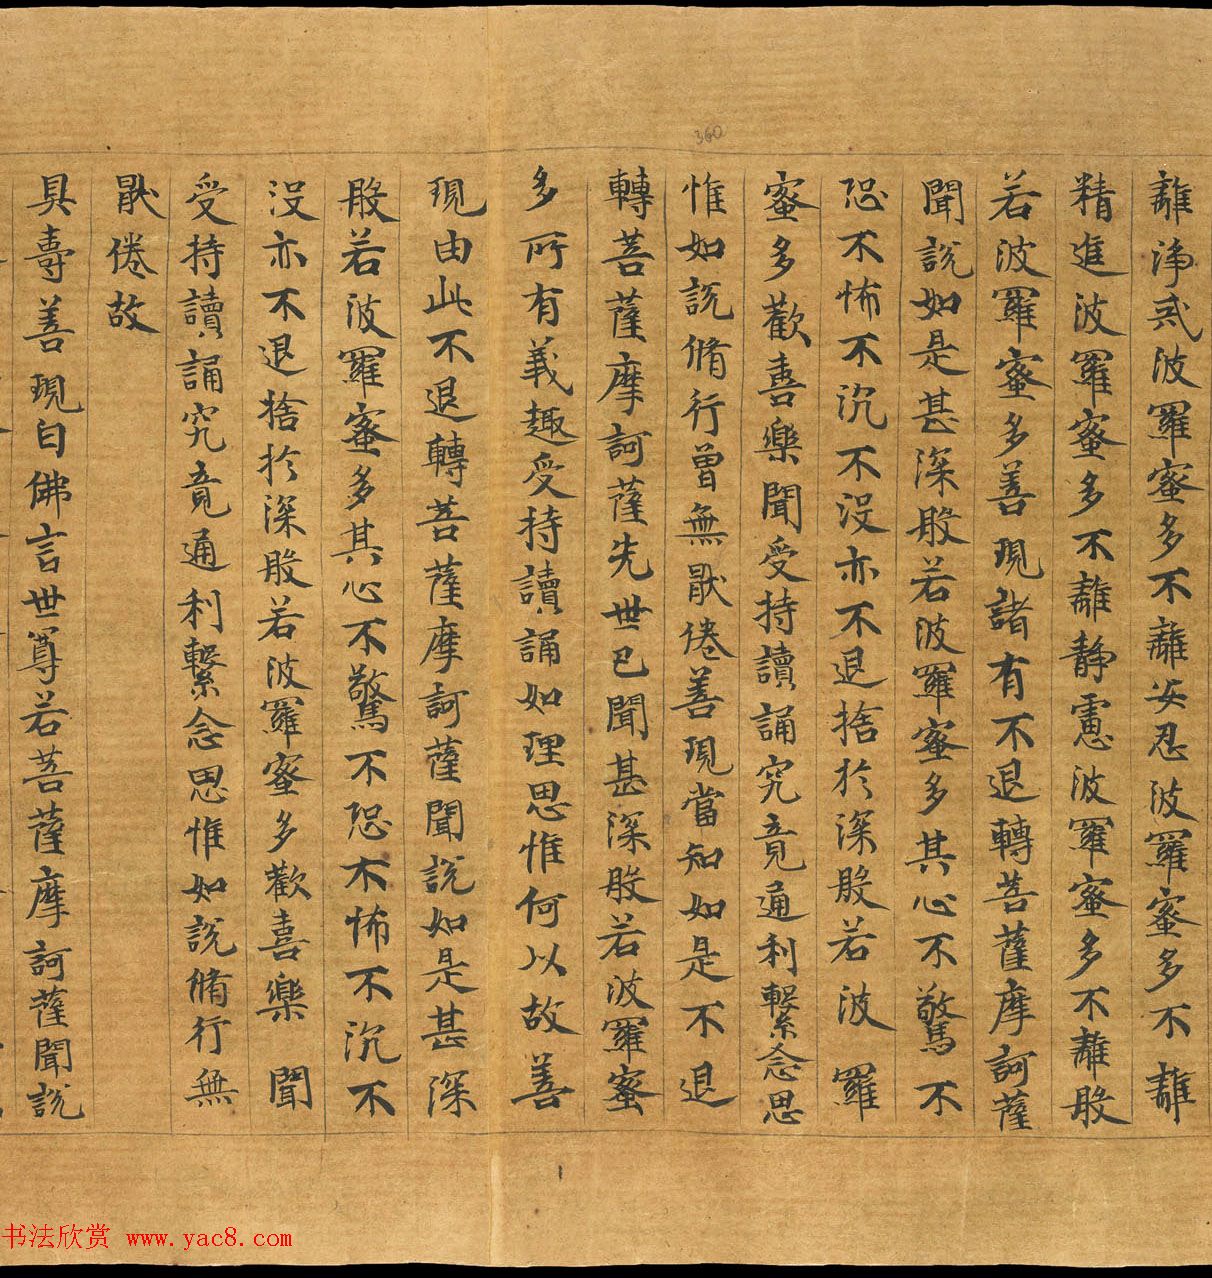 離淨戒波羅蜜多不離安忍波羅蜜多不離
精進波羅蜜多不離靜慮波羅蜜多不離般
若波羅蜜多善現諸有不退轉菩薩摩訶薩
聞說如是甚深般若波羅蜜多其心不驚不
恐不怖不沉不沒亦不退捨於深般若波羅
蜜多歡喜樂聞受持讀誦究竟通利繫念思
惟如說脩行曾無猒倦善現當知如是不退
轉菩薩摩訶薩先世已聞甚深般若波羅蜜
多所有義趣受持讀誦如理思惟何以故善
現由此不退轉菩薩摩訶薩聞說如是甚深
般若波羅蜜多其心不驚不恐不怖不沉不
沒亦不退捨於深般若波羅蜜多歡喜樂聞
受持讀誦究竟通利繫念思惟如說脩行無
猒倦故
具壽善現白佛言世尊若菩薩摩訶薩聞說
360
书法欣赏 www.yac8.com